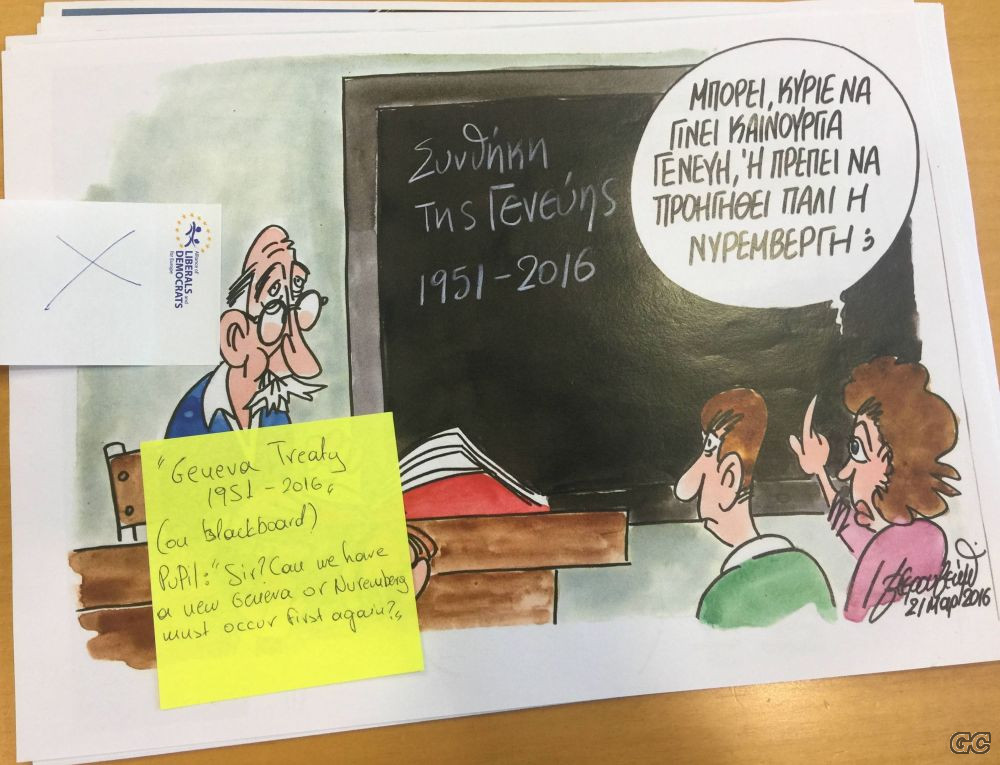 Συνθήκη
της Γενεύης
1951-2016
ΜΠΟΡΕΙ, ΚΥΡΙΕ ΝΑ
ΓΙΝΕΙ ΚΑΙΝΟΥΡΓΙΑ
ΓΕΝΕΥΗ, Ή ΠΡΕΠΕΙ ΝΑ
ΠΡΟΗΓΗΘΕΙ ΠΑΛΙ Η
ΝΥΡΕΜΒΕΡΓΗ;
Alliance of
LIBERALS and
DEMOCRATS
for Europe
"Geneva Treaty
1951-2016"
(on blackboard)
Pupil: "Sir? Can we have
a new Geneva or Nuremberg
must occur first again?"
21 Μαρ 2016
GC